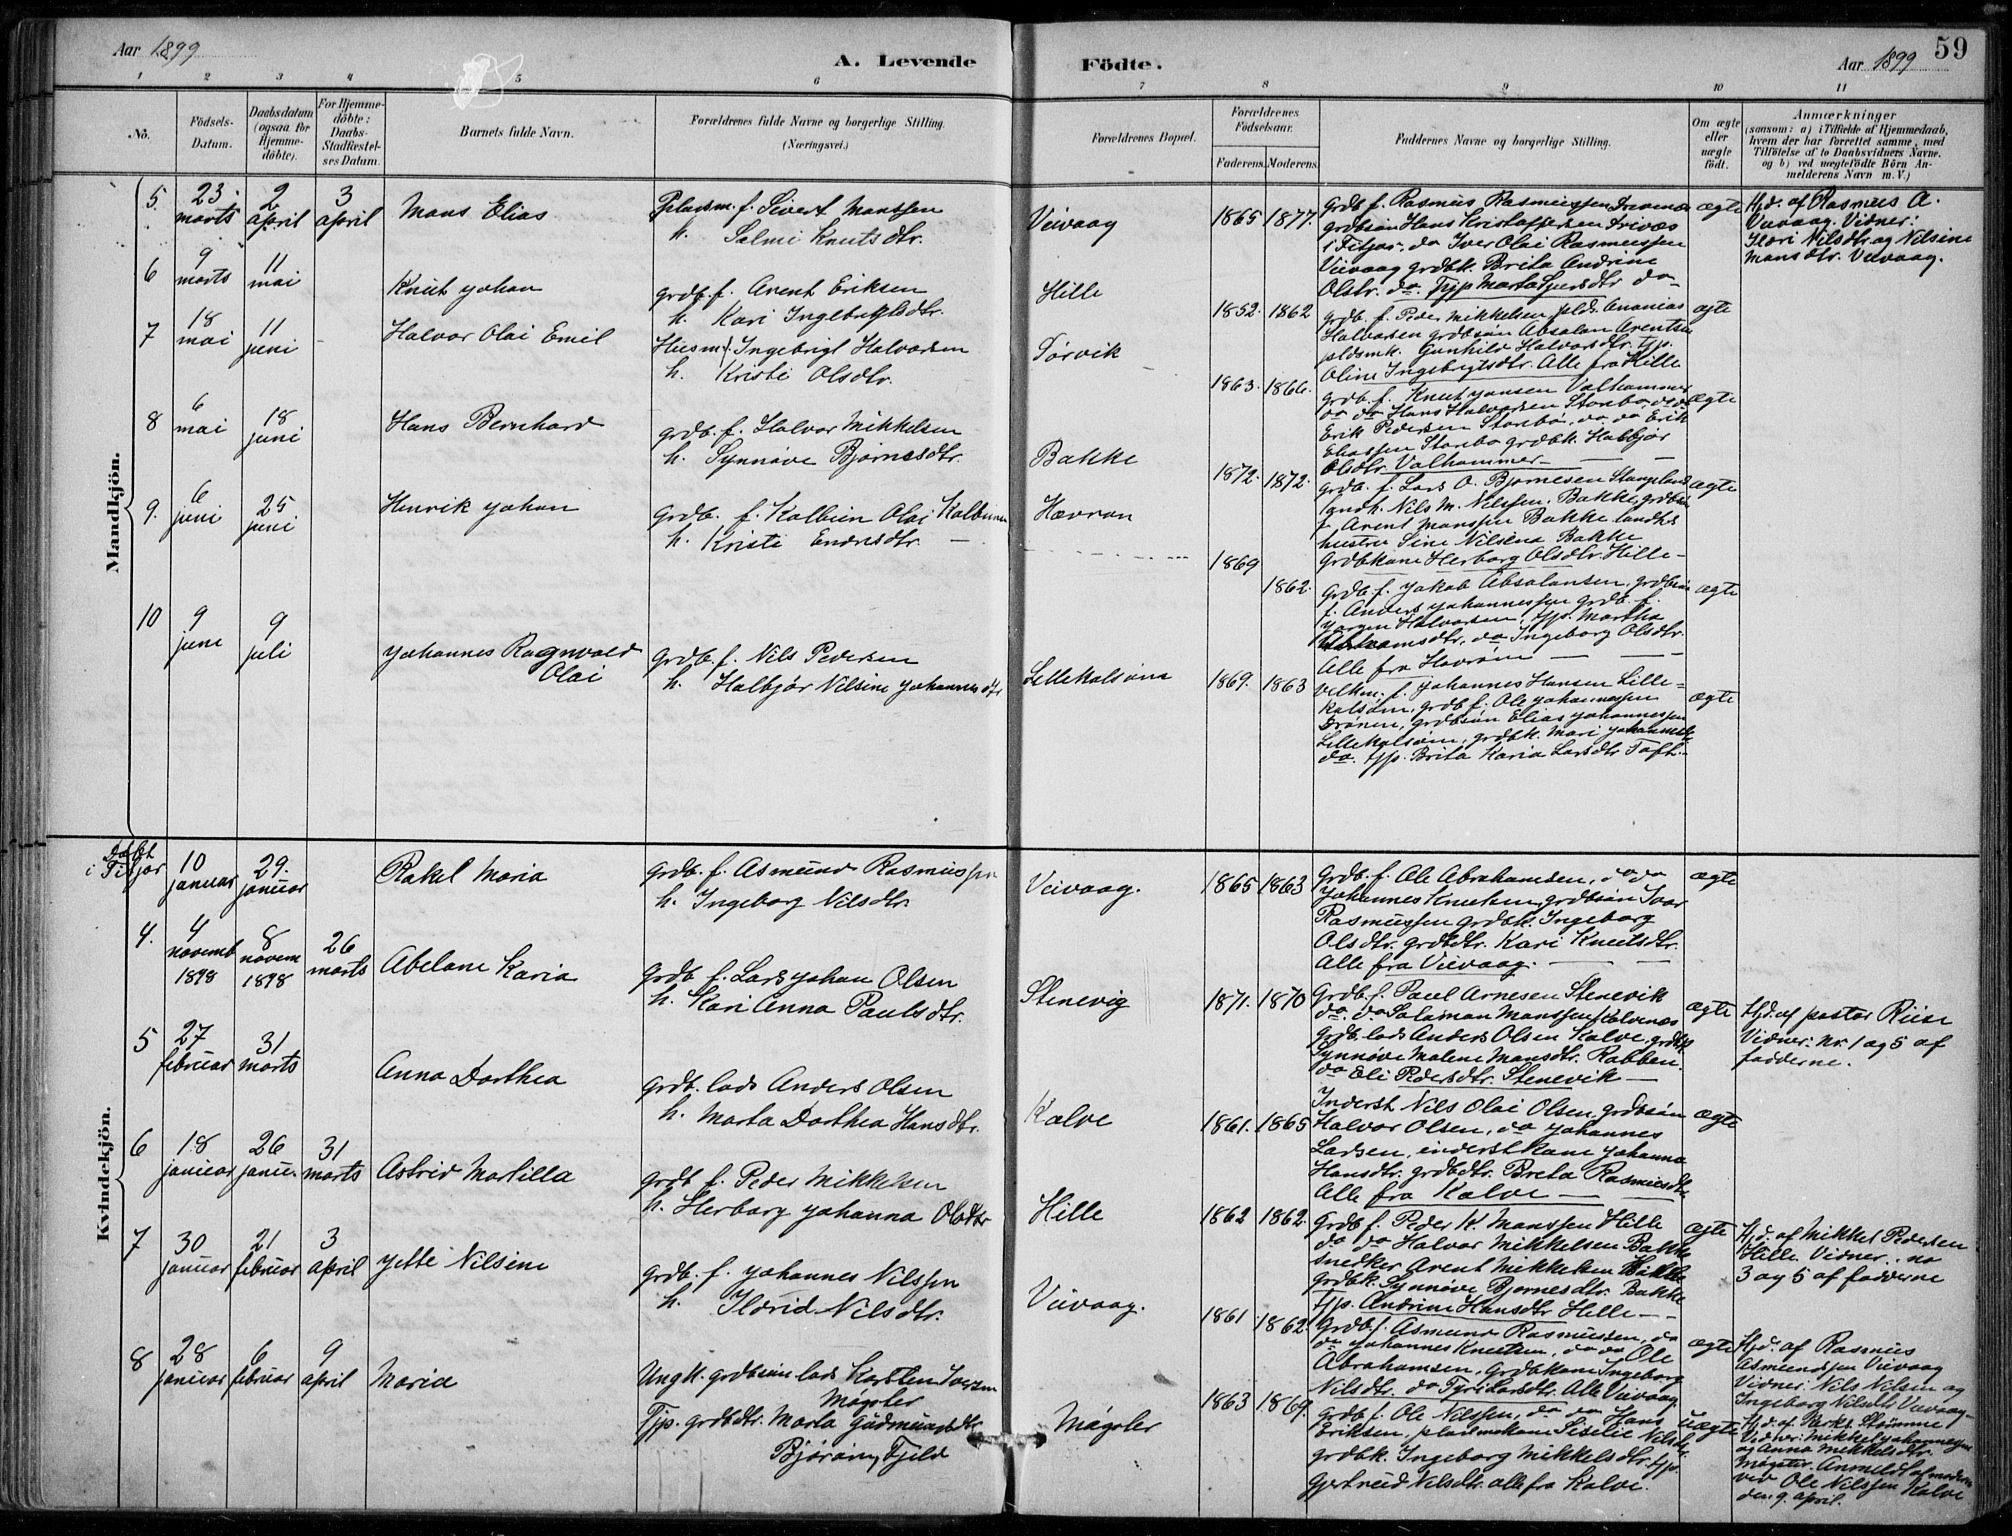 Aar 1899
A. Levende
Födte.
Aar 1899
59
1 2 3 4 5 6 7 8 9 10 11
No.
Födsels-
Datum.
Daabsdatum
(ogsaa for
Hjemme-
döbte).
For Hjemme-
döbte:
Daabs-
Stadfæstel-
ses Datum.
Barnets fulde Navn.
Forældrenes fulde Navne og borgerlige Stilling.
(Næringsvei.)
Forældrenes Bopæl.
Forældrenes
Födselsaar.
Faderens. Moderens.
Faddernes Navne og borgerlige Stilling.
Om ægte
eller
uægte
født.
Anmærkninger
(saasom: a) i Tilfælde af Hjemmedaab,
hvem der har forrettet samme, med
Tilføielse af to Daabsvidners Navne.
og b) ved uægtefødte Börn An-
melderens Navn m. V.)
Mandkjön.
5. 23 marts 2 april 3 april
Mans Elias
Pladsm. f. Sivert Manssen
h. Salmi Knutsdtr.
Veivaag
1865 1877.
grdb. f. Rasmus Rasmussen
grdbsön Hans Kristoffersen
i Fitjar. do Iver Olai Rasmussen
Veivaag grdbk. Brita Andrine
Olsdtr. do. Fyp Marta
ægte
Hjd. af Rasmus A.
Veivaag. Vidner:
Nilsdtr og Nilsine
Mansdtr. Veivaag.
6 9 marts 11 mai
Knut Johan
grdb. f. Arent Eriksen
h. Kari Ingebrigtsdtr.
Hille
1852. 1862
grdb. f. Peder Mikkelsen plds. Ananias
Halvorsen grdbsön Absalon Arentsen
pldsmk. Gunhild Halvorsdtr. Fyp.
Oline Ingebrigtsdtr. Alle fra Hille
ægte
7 18 mai 11 juni
Halvor Olai Emil
Husm. f. Ingebrigt Halvorsen
h. Kristi Olsdtr.
Törvik
1863. 1866.
grdb. f. Knut Jansen Valhammer
do do Hans Halvorsen Storebö, do do
Erik Pedersen Storebö, do do Erik
Eliassen Storebö grdbk. Halbjør
Olsdtr. Valhammer
ægte
8 6 mai 18 juni
Hans Bernhard
grdb. f. Halvor Mikkelsen
h. Synnøve Bjørnesdtr.
Bakke
1872. 1872.
grdb. f. Lars O. Bjørnesen Stangeland
Landh. Nils M. Nilssen. Bakke, grdbsön
f. Arent Manssen Bakke landhs
hustru Sine Nilsena Bakke
grdbkone Herborg Olsdtr. Hille
ægte
9. 6 juni 25 juni
Henrik Johan
grdb. f. Kolbein Olai Kolbeinsen
h. Kristi Endresdtr.
Hævrøn
1869 1862.
grdb. f. Jakob Absalonsen, grdbsön
f. Anders Johannessen grdb. f.
Jørgen Halvorsen, Fyp. Martha
do Ingeborg Olsdtr.
Alle fra Havrøen
ægte
10 9 juni 9 juli
Johannes Ragnvald
Olai
grdb. f. Nils Pedersen
h. Halbjör Nilsine Johannesdtr
Lillekalsöen
1869. 1863
f. Johannes Hansen Lille-
kalsøen, grdb f. Ole Johannessen
Drönen, grdbsön Elias Johannessen
Lillekalsøen, grdbk. Mari Johannesdtr
do. Fyp. Brita Karia Larsdtr Toft
ægte
Kvindekjön.
Döbt
i Fitjar
10 januar 29. januar
Rakel Maria
grdb. f. Asmund Rasmussen
h. Ingeborg Nilsdtr
Veivaag.
1865 1863
grdb. f. Ole Abrahamsen, do do
Johannes Knutsen, grdbsön Ivar
Rasmussen grdbk. Ingeborg
Olsdtr. grdbdtr. Kari Knutsdtr.
Alle fra Veivaag.
ægte
4. 4 novemb 1898 8 novem 1898 26 marts
Abelone Karia
grdb. f. Lars Johan Olsen
h. Kari Anna Paulsdtr.
Stenevig
1871. 1870
grdb. f. Paul Arnesen Stenevik
do. do Salamon Manssen Kalvenæs
grdb. lods Anders Olsen Kalve, grdbk
Synnøve Malene Mansdtr. Rabben.
do Eli Pedersdtr. Stenevik
ægte
Hjd. af pastor Riise
Vidner: nr. 1 og 5 af
fadderne.
5 27 februar 31 marts
Anna Dorthea
grdb. lods Anders Olsen
h. Marta Dorthea Hansdtr.
Kalve
1861. 1865
Inderst Nils Olai Olsen, grdbsön
Halvor Olsen, do Johannes
Larsen, inderstkone Johanna
Hansdtr. grdbdtr. Brita Rasmusdtr
Alle fra Kalve
ægte
6 18 januar 26 janu. 31 marts
Astrid Martilla
grdb. f. Peder Mikkelsen
h. Herborg Johanna Olsdtr
Hille
1862 1862.
grdb. f. Peder K. Manssen Hille
do do Halvor Mikkelsen Bakke
snedker Arent Mikkelsen Bakke
grdbk. Synnøve Bjørnesdtr. Bakke
Fyp. Andrine Hansdtr Hille
ægte
Hjd. af Mikkel Pedersen
Hille. Vidner: no
3 og 5 af fadderne
7 30 januar 21 februar 3 april
Jette Nilsine
grdb. f. Johannes Nilssen
h. Ildrid Nilsdtr.
Veivaag.
1861 1862.
grdb. f. Asmund Rasmussen, do
do Johannes Knutsen, do do Ole
Abrahamsen, grdbkone Ingeborg
Nilsdtr. do Fyri Larsdtr. Alle Veivaag
ægte
Hjd. af Rasmus
Asmundssen Veivaag
Vidner: Nils Nilsen og
Ingeborg Nilsdtr Veivaag
8 28 januar 6 februar 9 april
Maria
Ungk. grdbsön lods Karsten Iversen
Møgster
Fyp. grdbdtr. Marta Gudmundsdtr
Björøen, Fjeld
Møgster
1863 1869.
grdb. f. Ole Nilssen, do do Hans
Eriksen, pladsmkone Siselie Nilsdtr
grdbk. Ingeborg Mikkelsdtr. Fyp.
Gjertrud Nilsdtr. alle fra Kalve.
uægte
Hjd. af Berte Strømme
Vidner: Mikkel Johannessen
og Anna Mikkelsdtr.
Møgster. Anmeldt af moderen
ved Ole Nilssen Kalve
den 9. april.